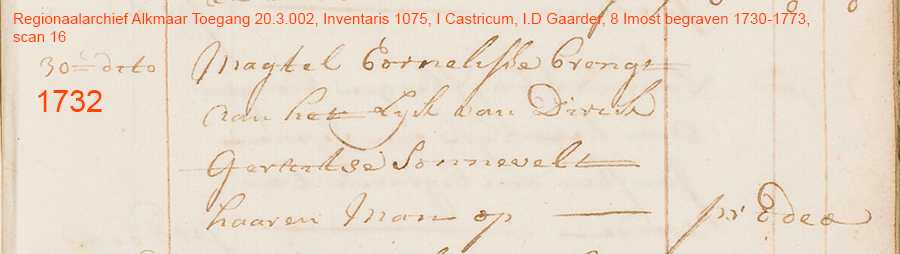 Regionaalarchief Alkmaar Toegang 20.3.002, Inventaris 1075, I Castricum, I.D Gaarder, 8 Imost begraven 1730-1773,
scan 16
30en dito Magtel Cornelisse brengt
1732
aan het Lijk van Dirck
Gerritse Sonnevelt
haaren Man op — pr Edeo